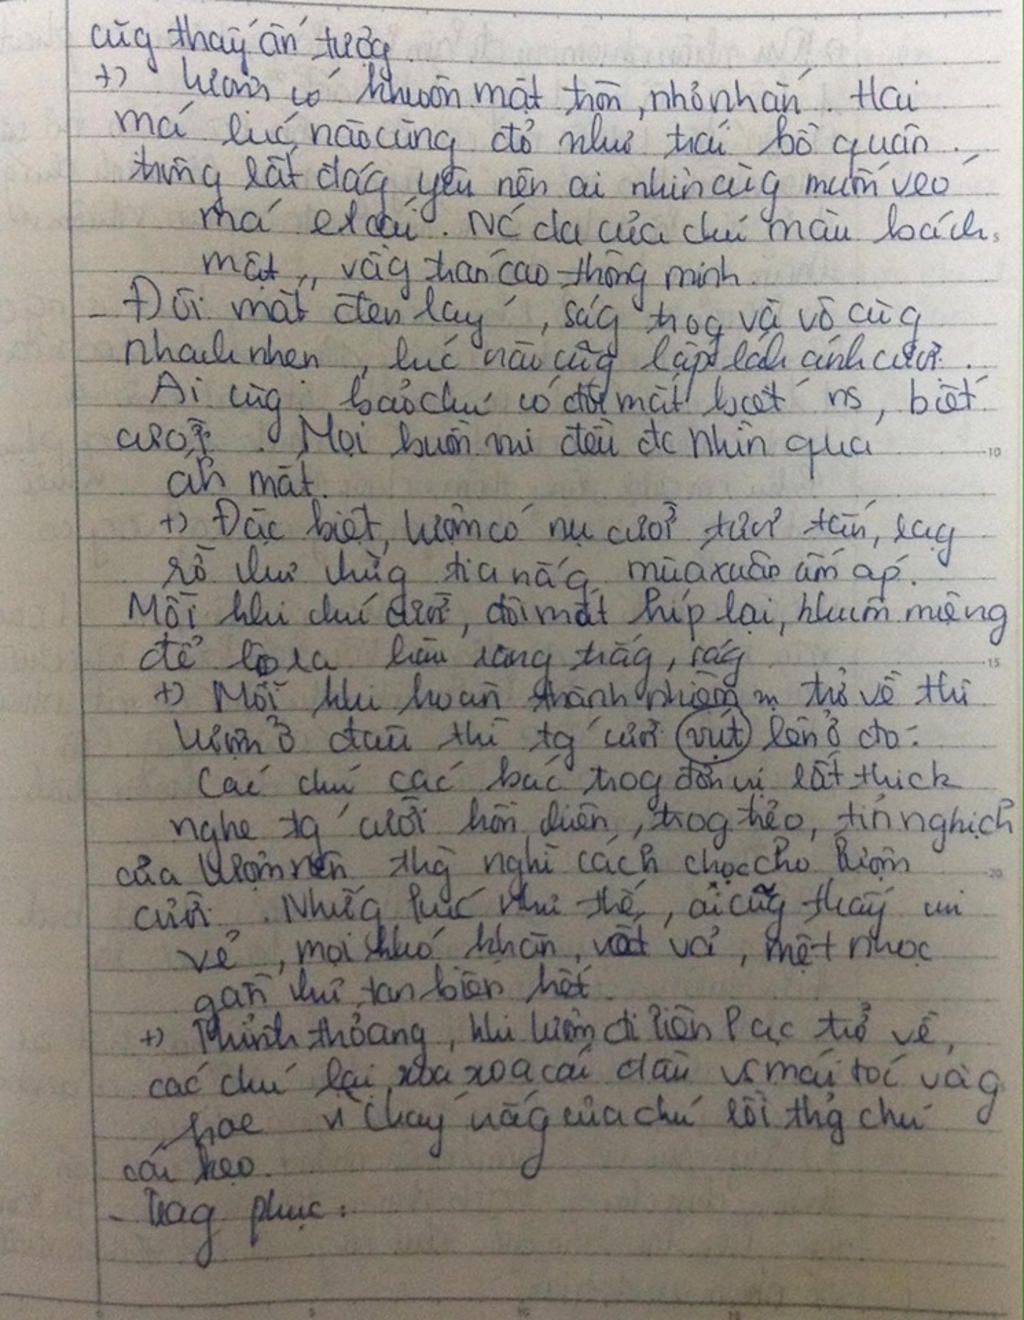 cũg thấy ấn tượg
+) Lượm có khuôn mặt tròn, nhỏ nhắn. Hai
má lúc nào cũng đỏ như trái bồ quân.
trông rất đág yêu nên ai nhìn cũg muốn véo
má . Nc da của chú màu bách
mật, vầg trán cao thông minh.
- Đôi mắt đen láy, ság trog và vô cùg
nhanh nhẹn, lúc nào cũg lấp lánh ánh cười.
Ai cũg bảo chú có đôi mắt biết ns, biết
cười. Mọi buồn vui đều đc nhìn qua
ánh mắt.
+) Đặc biệt, Lượm có nụ cười tươi tắn, rạg
rỡ như nhữg tia nắg mùa xuân ấm áp.
Mỗi khi chú cười, đôi mắt híp lại, khuôn miệng
để lộ ra hàm răng trắg, ság
+) Mỗi khi hoàn thành nhiệm m trở về thì
Lượm ở đâu thì tg cười vút lên ở đó.
Các chú các bác trog đơn vị rất thick
nghe tg cười hồn nhiên, trog trẻo, tinh nghịch
của Lượm nên thg nghĩ cách chọc cho Lượm
cười. Nhữg lúc như thế, ai cũg thấy vui
vẻ, mọi khó khăn, vất vả, mệt nhọc
gần như tan biến hết.
+) Thỉnh thoảng, khi Lượm đi liên lạc trở về,
các chú lại xoa xoa cái đầu vs mái tóc vàg
hoe vì cháy nắg của chú rồi thg chú
cái kẹo.
- Trag phục: